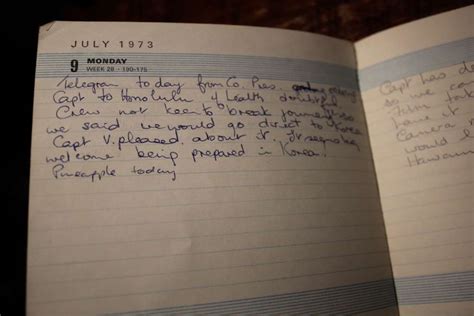 JULY 1973
9 MONDAY
WEEK 28 • 190-175
Telegram today from Co. Pres. ordering
Capt to Honolulu if health doubtful
Crew not keen to break journey so
we said we would go direct to Korea
Capt V. pleased about it.
welcome being prepared in Korea.
Pineapple today
Capt has de
so we ca
film tak
have it
Camera
would
Hawaii